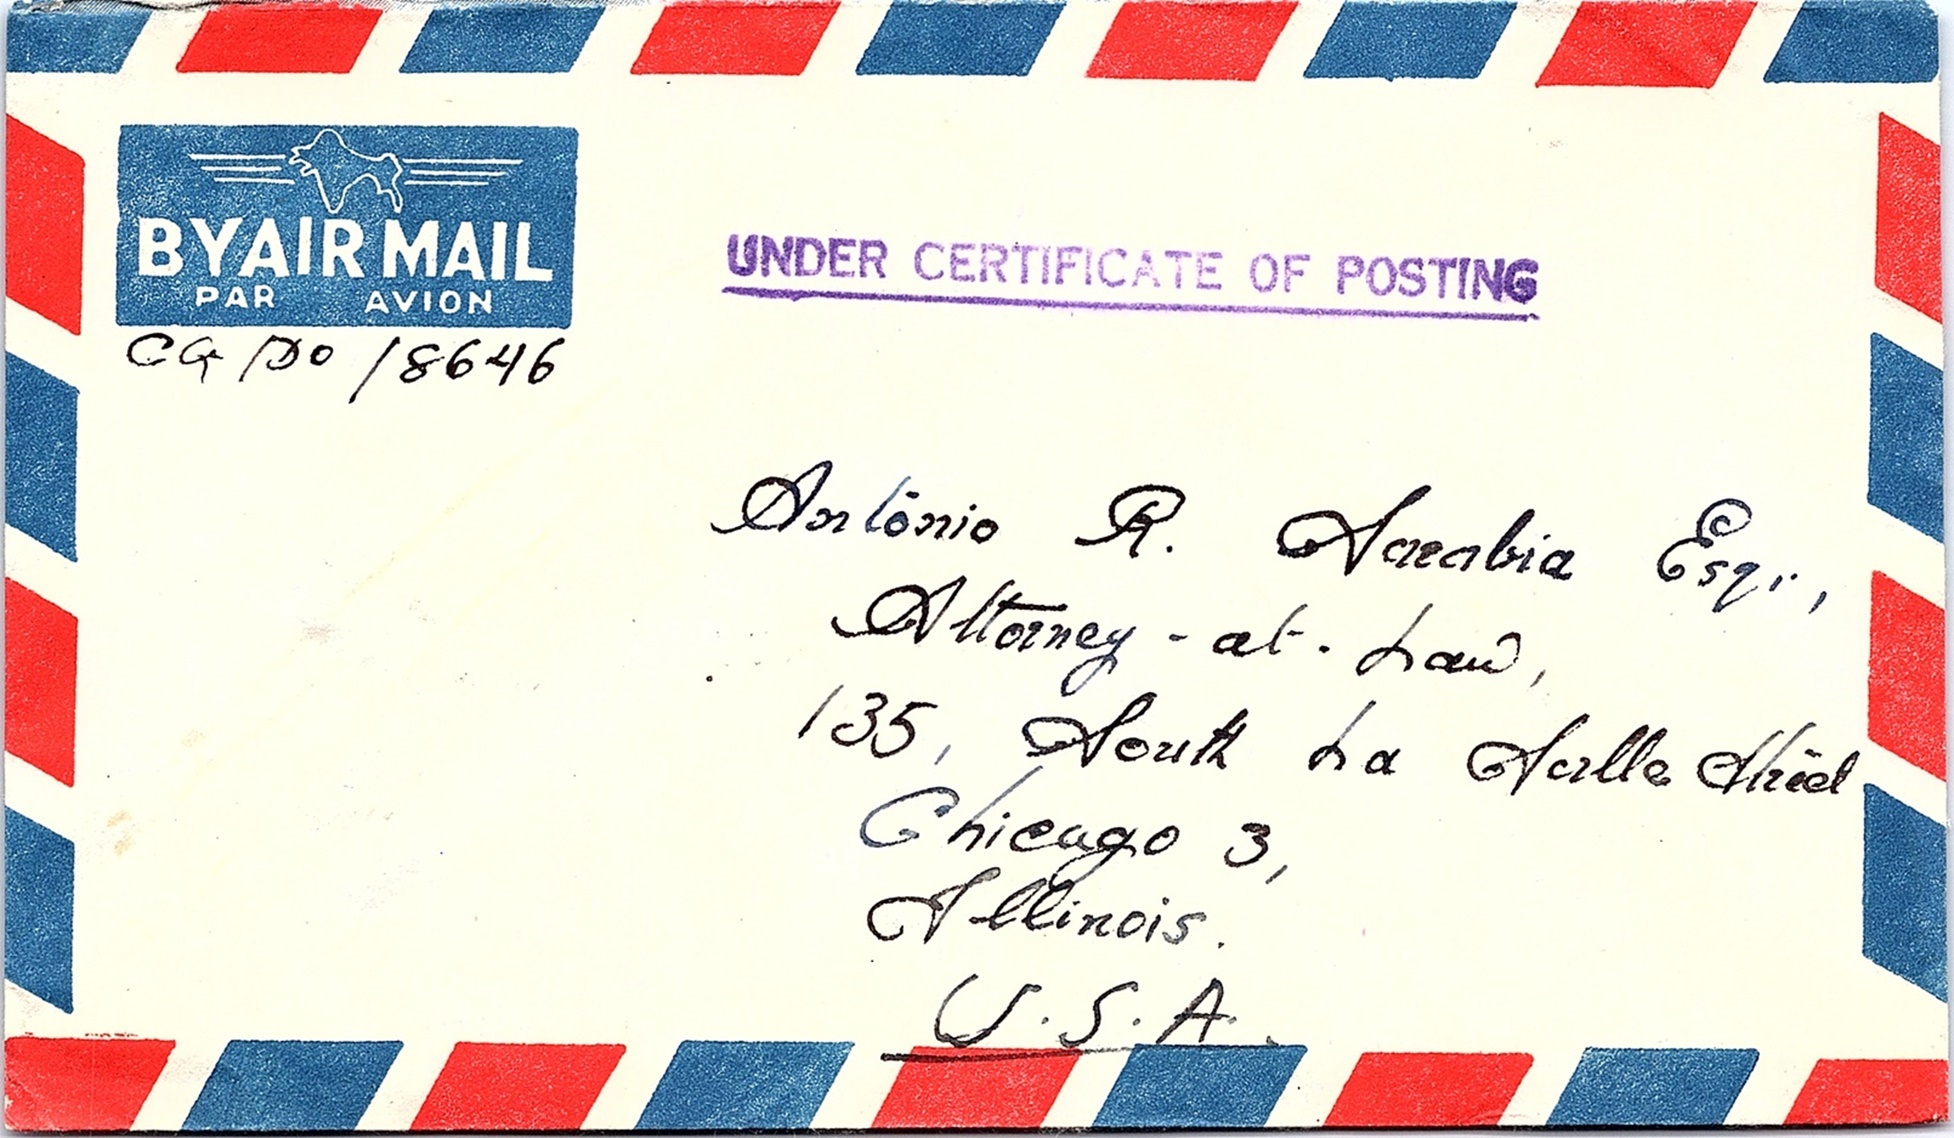 BY AIR MAIL
PAR AVION
CG/DO/8646
UNDER CERTIFICATE OF POSTING
Antonio R. Sarabia Esqr.,
Attorney-at-Law,
135, South La Salle Street
Chicago 3,
Illinois.
U.S.A.